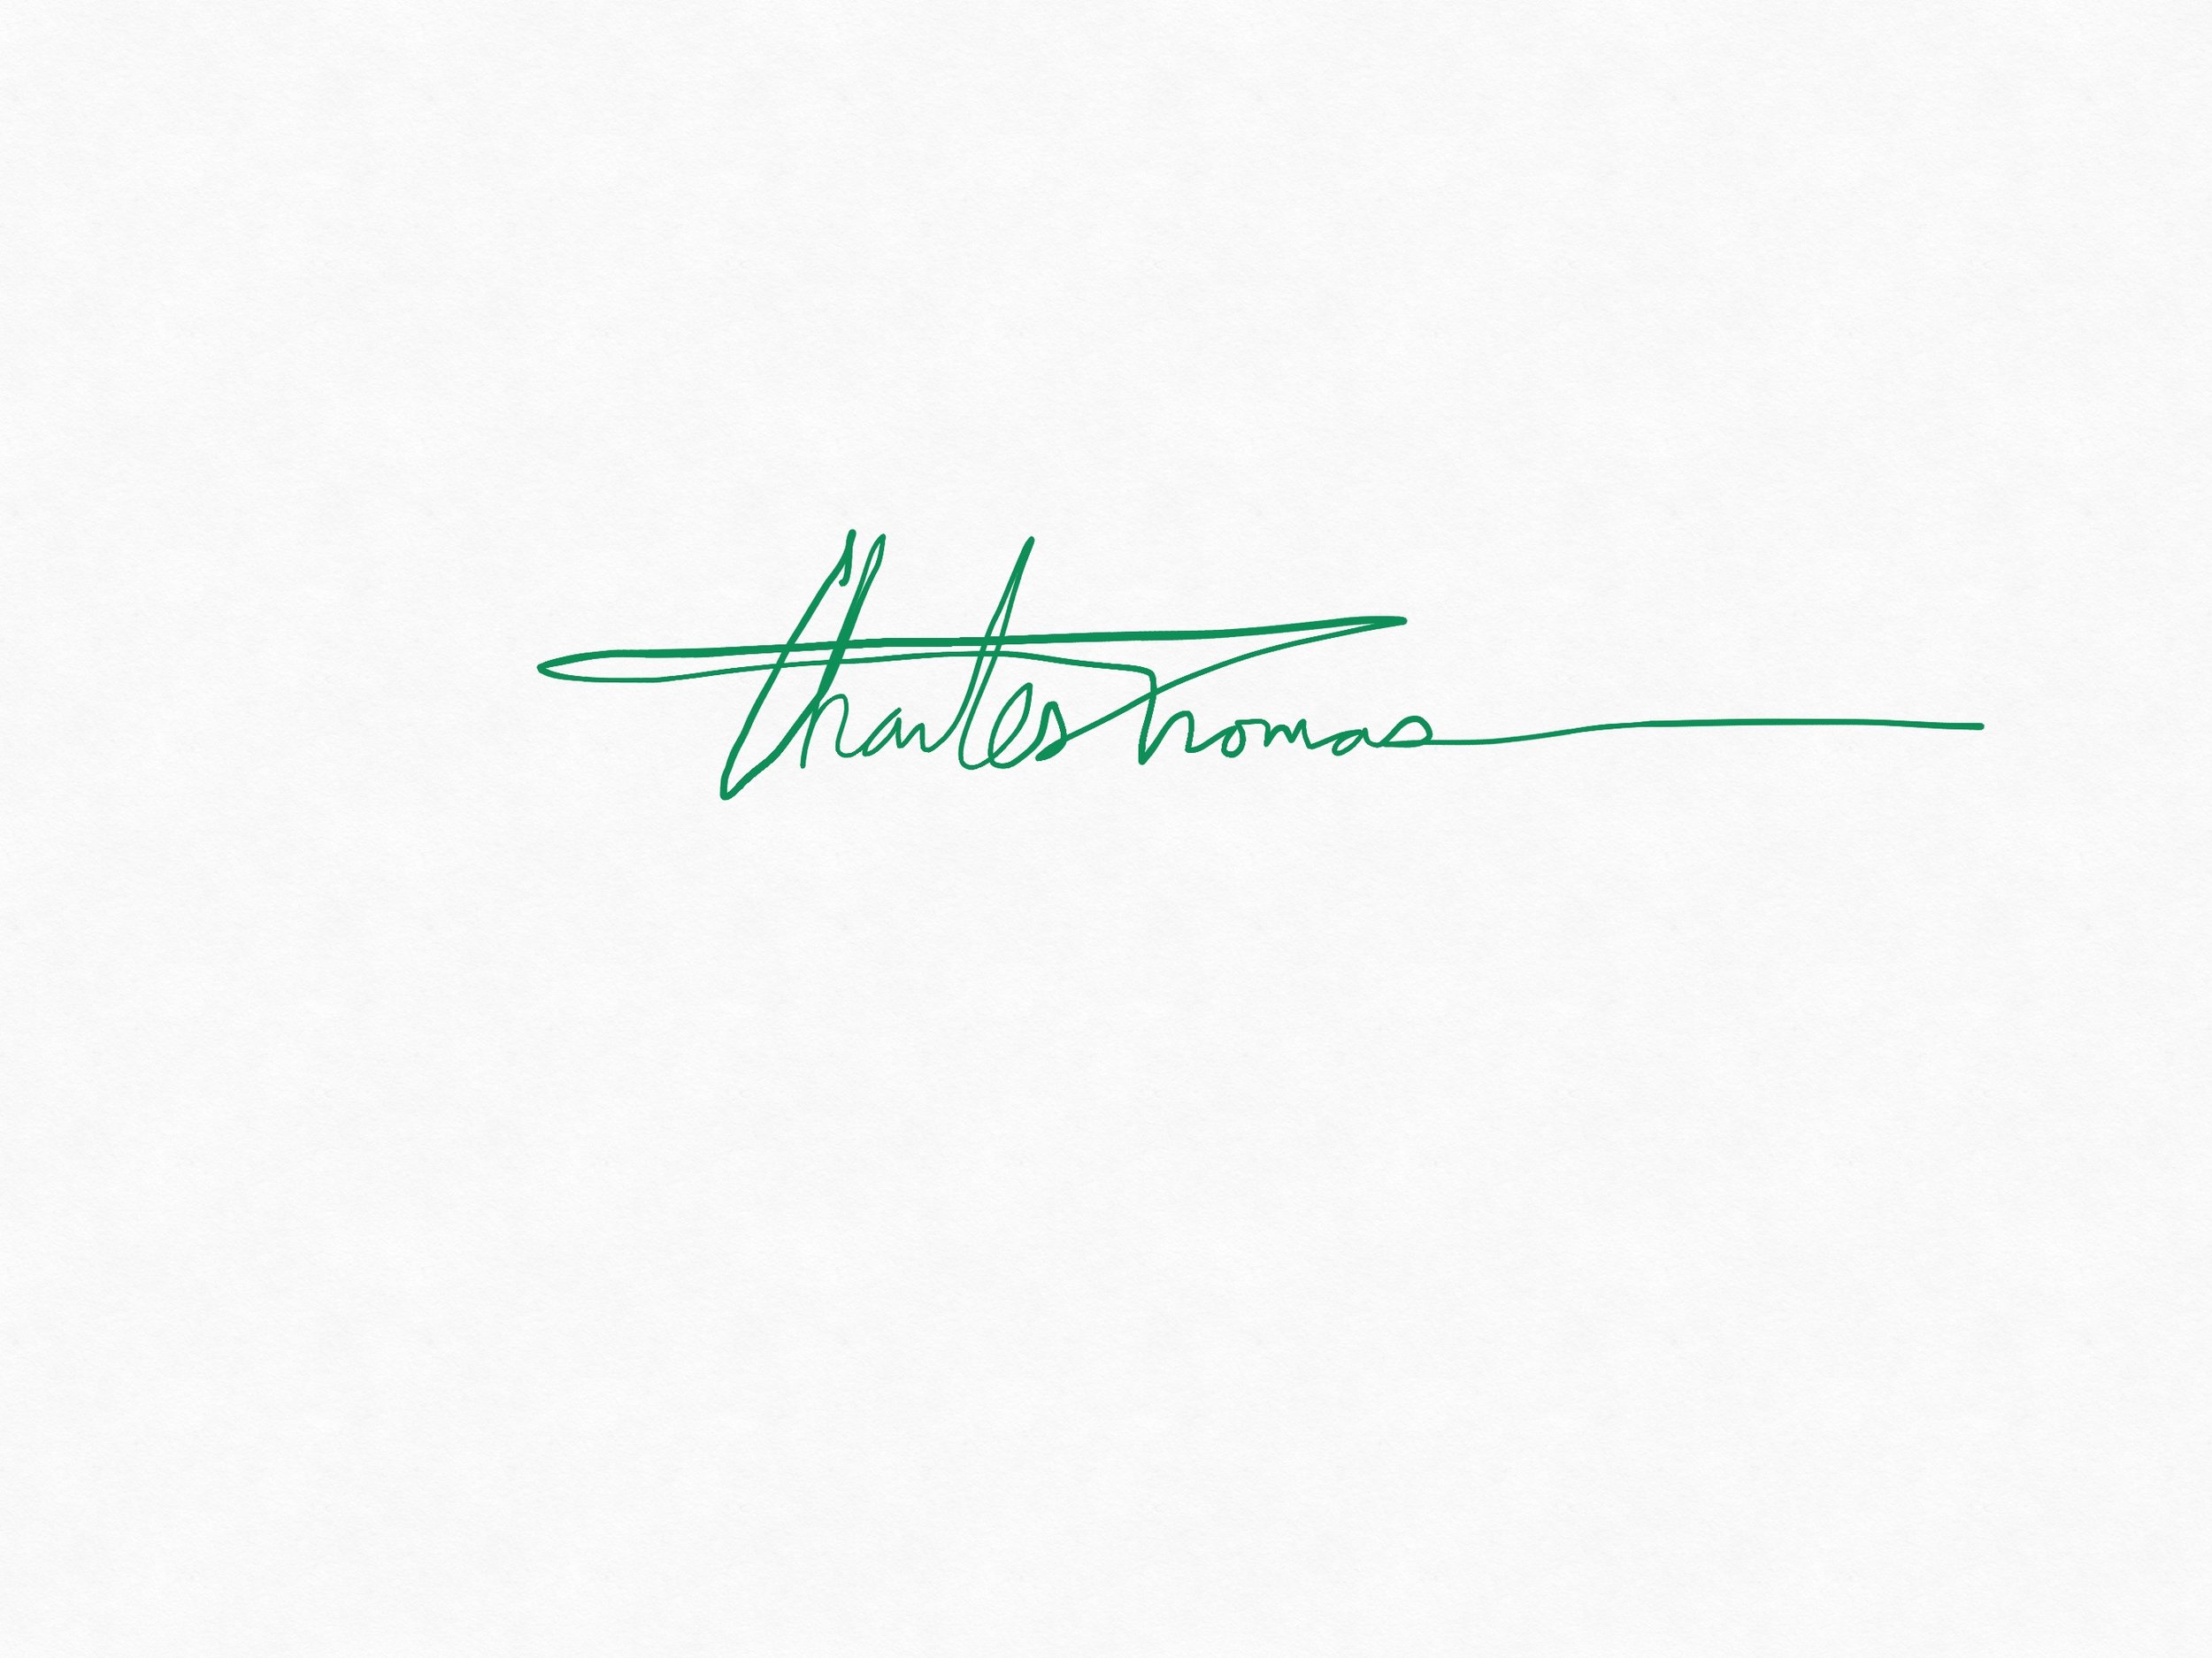 Charles Thomas